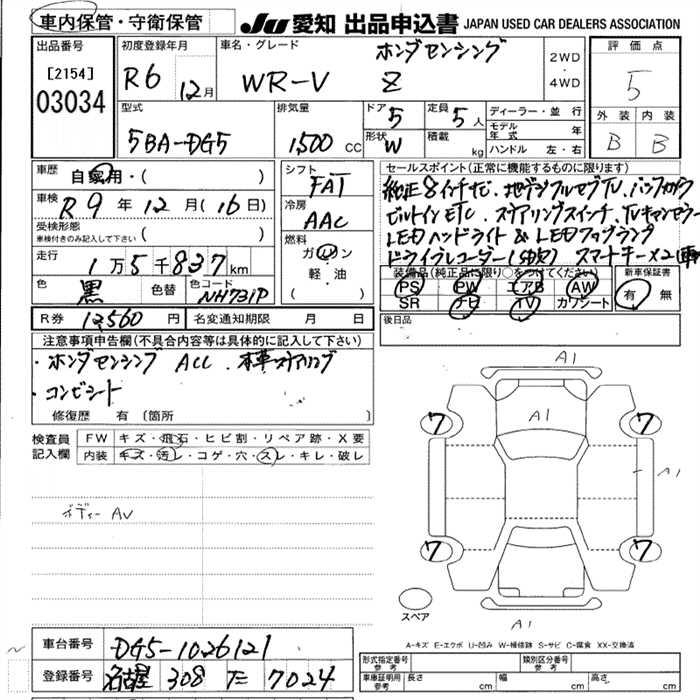 車内保管・守衛保管
JU 愛知 出品申込書 JAPAN USED CAR DEALERS ASSOCIATION
出品番号 [2154] 03034
初度登録年月 R6 12月
車名・グレード ホンダセンシング
WR-V Z
2WD・4WD
評価点 5
外装 内装
B B
型式 5BA-DG5
排気量 1,500 CC
ドア 5
形状 W
定員 5人
積載 kg
ディーラー・並行
モデル年式 年
ハンドル 左・右
車歴 自家用・( )
車検 R9年12月(16日)
受検形態
車検付きのみ記入して下さい ( )
走行 1万5千837km
色 黒 色替 色コード NH731P
シフト FAT
冷房 AAC
燃料 ガソリン
軽・油
( )
セールスポイント(正常に機能するものに限ります)
純正8インチナビ、地デジフルセグTV、バックカメラ
ビルトインETC、ステアリングスイッチ、TVキャンセラー
LEDヘッドライト & LEDフォグランプ
ドライブレコーダー スマートキー×2
装備品(純正品に限り○をつけてください)
PS PW エアB AW
SR ナビ TV カワシート
新車保証書
有 無
R券 12,560円 名変通知期限 月 日
後日品
注意事項申告欄(不具合内容等は具体的に記入して下さい)
・ホンダセンシング ACC、本革ステアリング
・コンビシート
修復歴 有 (箇所 )
検査員記入欄
FW キズ・飛石・ヒビ割・リペア跡・X要
内装 キズ・汚レ・コゲ・穴・スレ・キレ・破レ
ボディー AV
A1
A1
7 7
A1
7 7
スペア
A1
A-キズ E-エクボ U-凹み W-補修跡 S-サビ C-腐食 XX-交換済
車台番号 DG5-1026121
登録番号 名古屋 308 7024
形式指定番号 参考
類別区分番号 参考
車庫証明用 参考 長さ cm 幅 cm 高さ cm